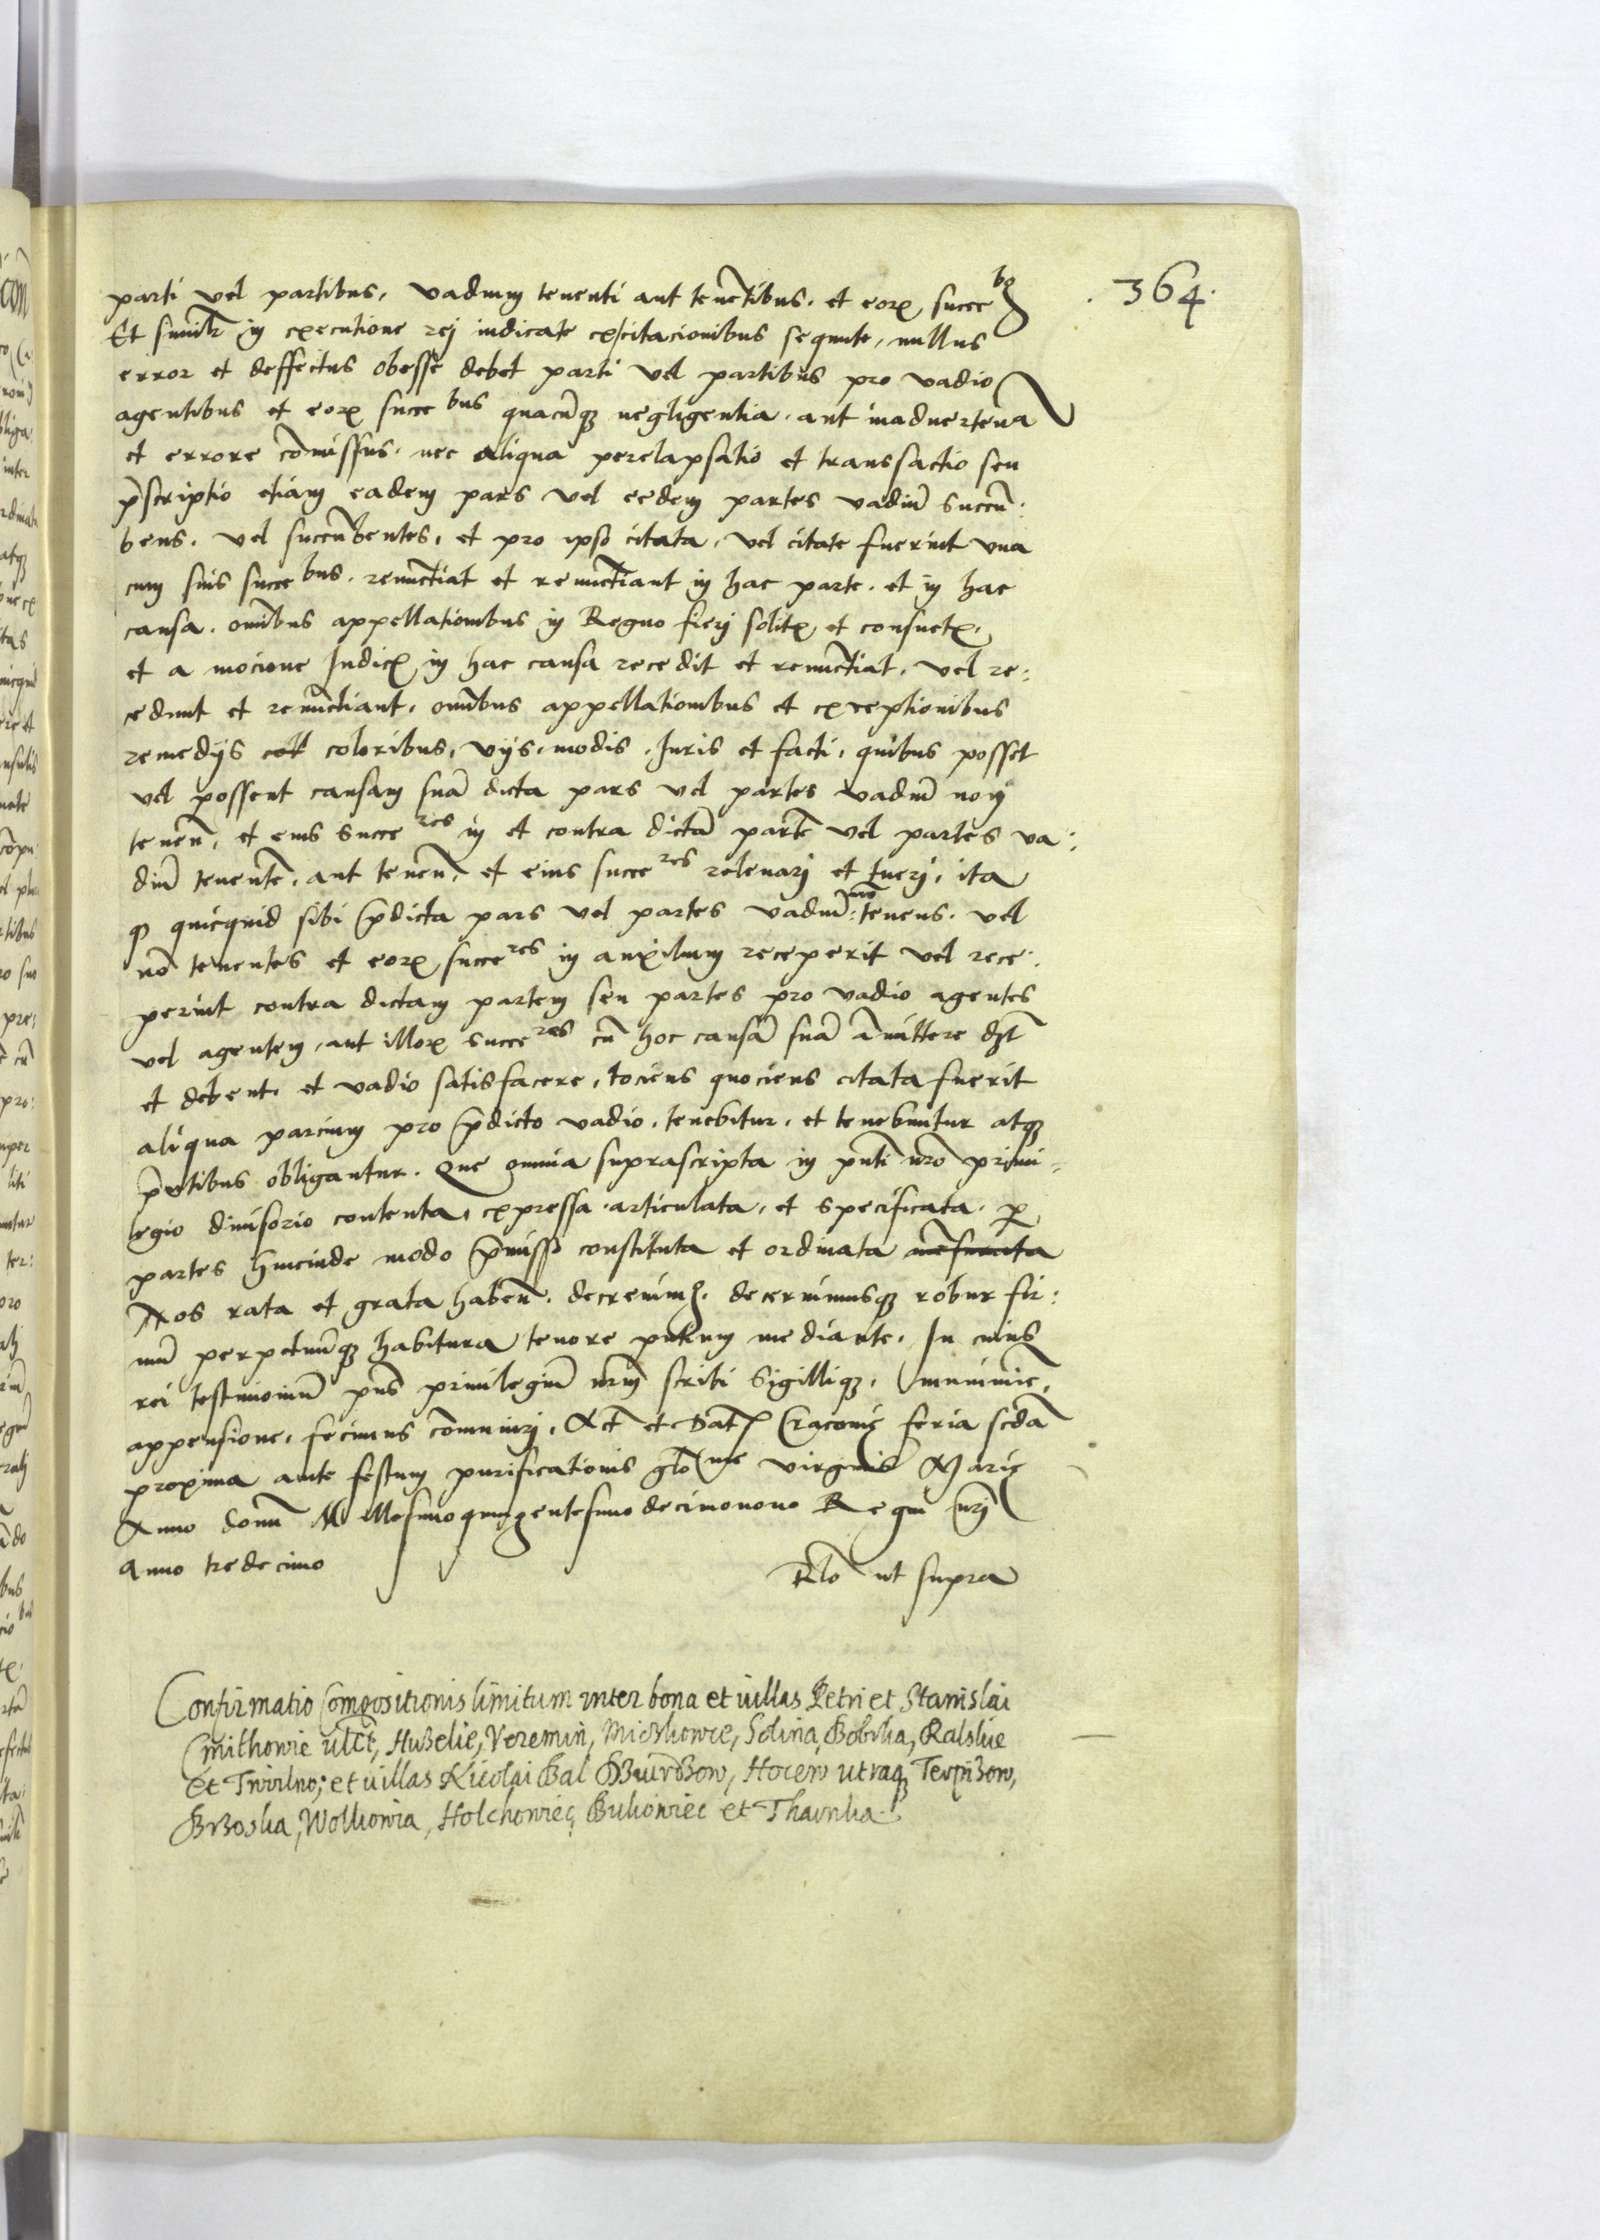 . 364 .
parti vel partibus, vadium tenenti aut tenẽtibus. et eorꝝ succebꝫ
Et similr̃ in executione rej iudicate ex citacionibus sequute, nullus
error et deffectus obesse debet parti vel partibus pro vadio
agentibus et eorꝝ succebus quacũqꝫ negligentia. aut inaduertẽtia
et errore cõmissus. nec aliqua perelapsatio et transactio seu
p̃scriptio etiam eadem pars vel eedem partes vadiũ succũ:
bens. vel succũbentes, et pro ipso citata, vel citate fuerint vna
cum suis succebus. renũctiat et renũctiant in hac parte. et in hac
causa. omĩbus appellationibus in Regno fierj solitꝭ et consuetꝭ,
et a mocione Iudicꝭ in hac causa recedit et renũctiat, vel re:
cedunt et renũctiant, omĩbus appellationibus et exceptionibus
remedijs coloribus, vijs, modis, Iuris et facti, quibus posset
vel possent causam suã dicta pars vel partes vadiũ non
tenen̄, et eius succeres in et contra dictã partẽ vel partes va:
diũ tenentẽ, aut tenen̄, et eius succeres releuarj et tuerj, ita
ꝙ quicquid sibi p̃dicta pars vel partes vadiũ: tenens. vel
nõ tenentes et eorꝝ succeres in auxilium receperit vel rece:
perint contra dictam partem seu partes pro vadio agentes
vel agentem, aut illorꝝ succeres cũ hoc causã suã amittere dꝫt
et debent, et vadio satisfacere, tociens quociens citata fuerit
aliqua parcium pro p̃dicto vadio, tenebitur, et tenebuntur atqꝫ
p̃ntibus obligantur. Que omnia suprascripta in pñti nrõ priui-
legio diuisorio contenta, expressa, articulata, et specificata, ꝑ
partes hincinde modo p̃misso constituta et ordinata
Nos rata et grata haben̄. decreuimꝰ. decernimusqꝫ robur fir:
mũ perpetuũqꝫ habitura tenore pñtium mediante. In cuius
rei testimoniũ pñs priuilegiũ nrm̃ scribi Sigilliqꝫ, munimie,
appensione, fecimus cõmunirj, Act̃ et Dat̃ Cracouię feria scdã
proxima ante festum purificationis glõsae virginis Marię
Anno domĩ Millesimoquingentesimodecimonono Regni nrj̃
Anno tredecimo
Rlõ ut supra
Confirmatio Compositionis limitum inter bona et uillas Petri et Stanislai
Cmithowie ult̃, Huzelie, Veremin, Miczkowce, Solina, Bobrka, Ralskie
et Twirlno; et uillas Nicolai Bal Dzuirdzow, Hocew utraqꝫ Terpizow,
Brzoska, Wolkowia, Holchowiec, Bukowiec et Thaurka.